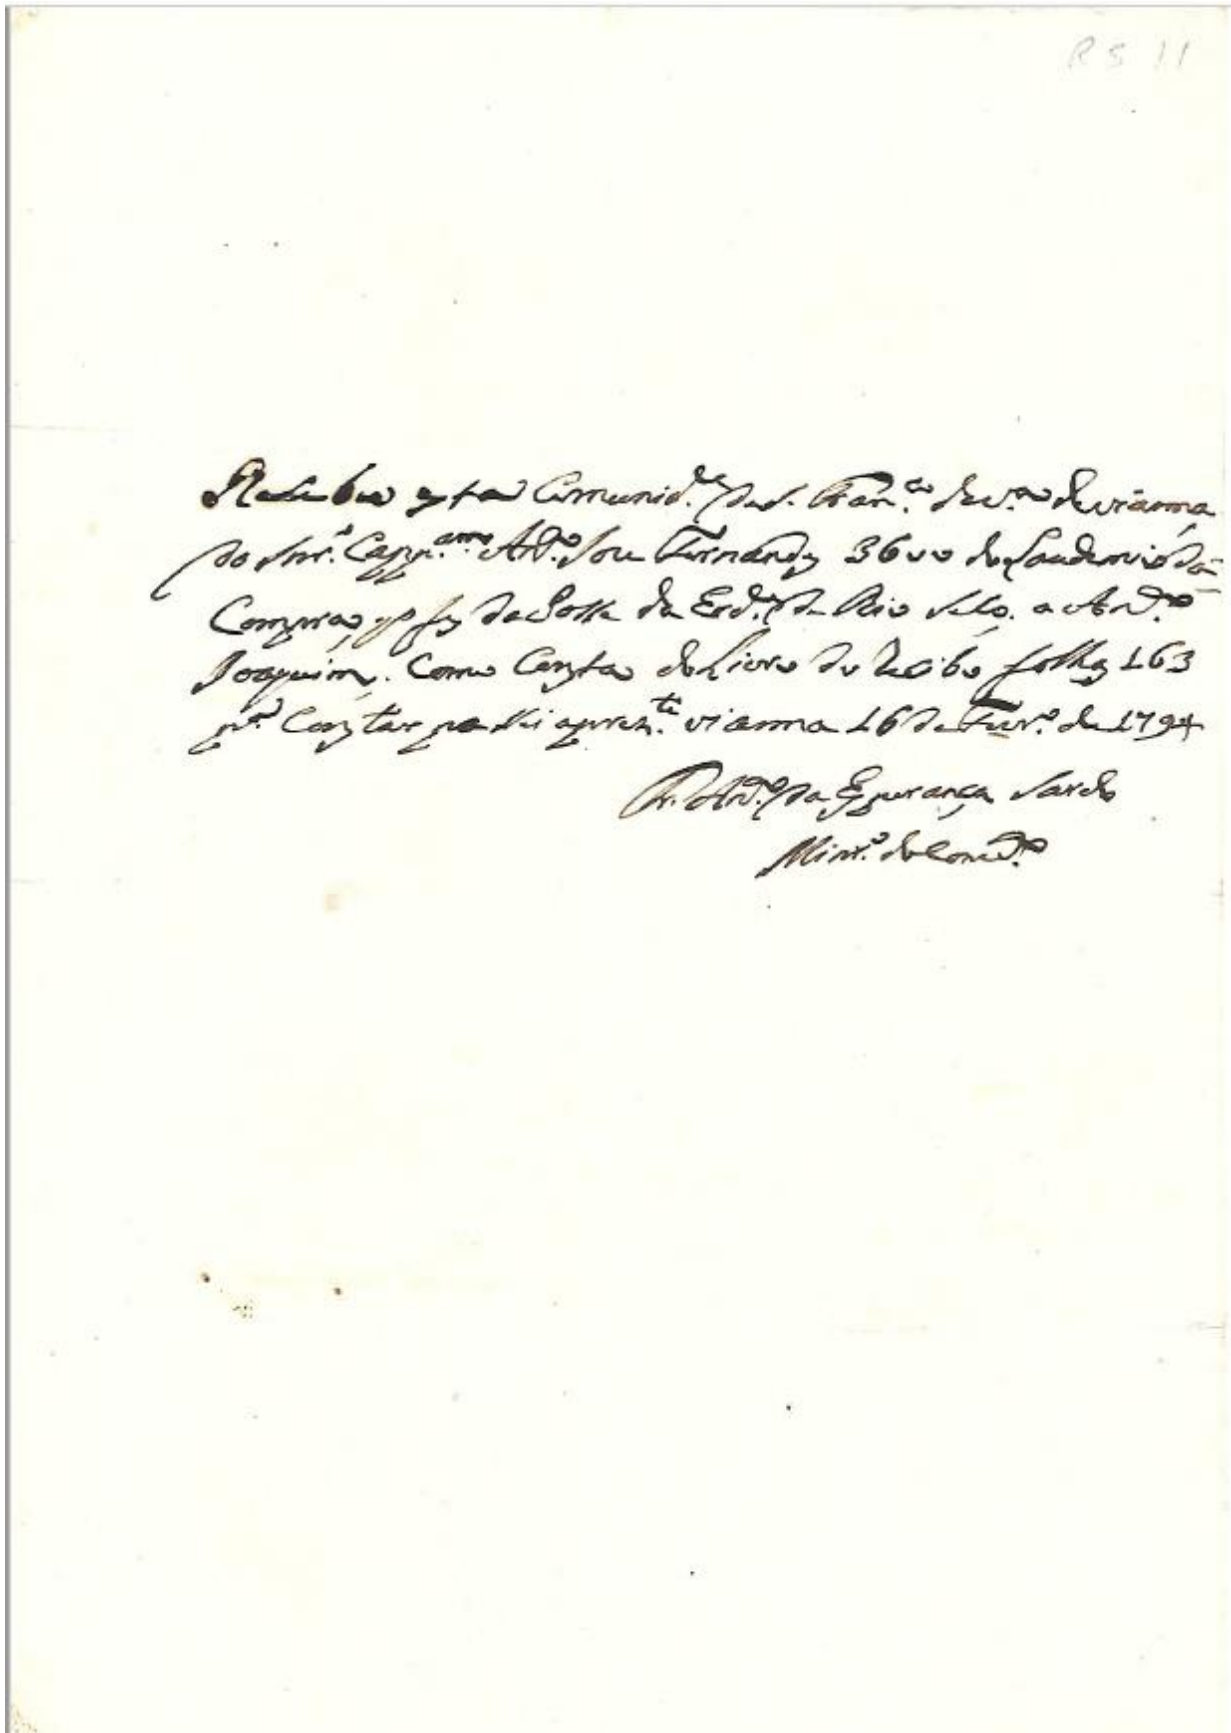 RS 11
Recebeo esta Comunid.e de S. Fran.co de v.a de vianna
do Snr. Capp.am Ant.o Joze Fernandez 36 de Laudemio da
Compra, q fez da da Erd.e de Rio Seco. a Ant.o
Joaquim. Como Consta do Livro do Recibo folhas 163
p.a Constar pacei a prez.te vianna 16 de Fevr.o de 1794
Fr. Ant.o da Esperança Sardo
Min.o do Conv.to